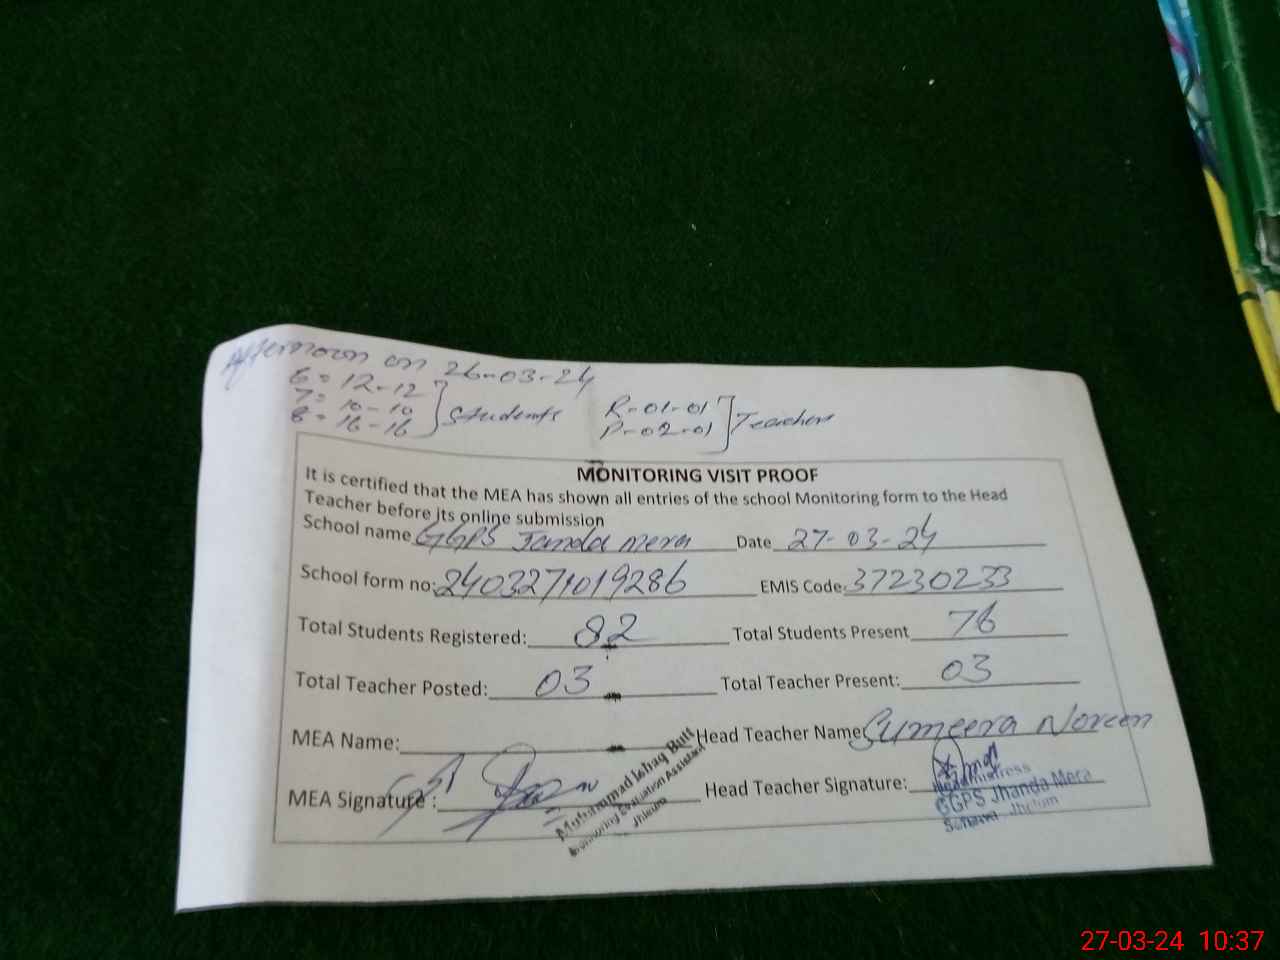 Afternoon on 26-03-24
6 = 12-12
7 = 10-10
8 = 16-16
Students
R-01-01
P-02-01
Teacher
MONITORING VISIT PROOF
It is certified that the MEA has shown all entries of the school Monitoring form to the Head
Teacher before its online submission
School name GGPS Janda mera Date 27-03-24
School form no: 2403271019286 EMIS Code: 37230233
Total Students Registered: 82 Total Students Present 76
Total Teacher Posted: 03 Total Teacher Present: 03
MEA Name: Head Teacher Name Sumeera Noreen
MEA Signature: Head Teacher Signature:
Muhammad Ishraq Butt
Monitoring Evaluation Assistant
Jhleum
Headmistress
GGPS Jhanda Mera
Sohawa Jhelum
27-03-24 10:37